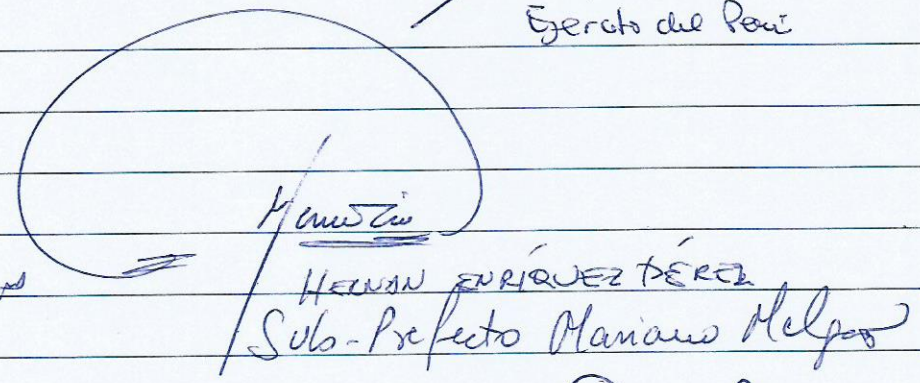 Ejercito del Perú
HERNAN ENRÍQUEZ PÉREZ
Sub-Prefecto Mariano Melgar